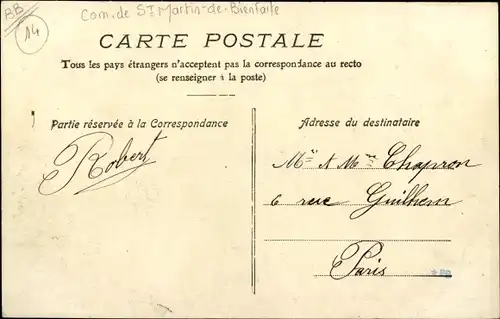 BB
14
Com. de St Martin-de-Bienfaite
CARTE POSTALE
Tous les pays étrangers n'acceptent pas la correspondance au recto
(se renseigner à la poste)
Partie réservée à la Correspondance
Robert
Adresse du destinataire
Chapron
6 rue Guilhem
Paris